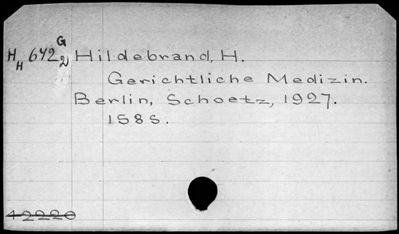 G
H H 642 2 Hildebrand, H.
Gerichtliche Medizin.
Berlin, Schoetz, 1927.
158S.
42220